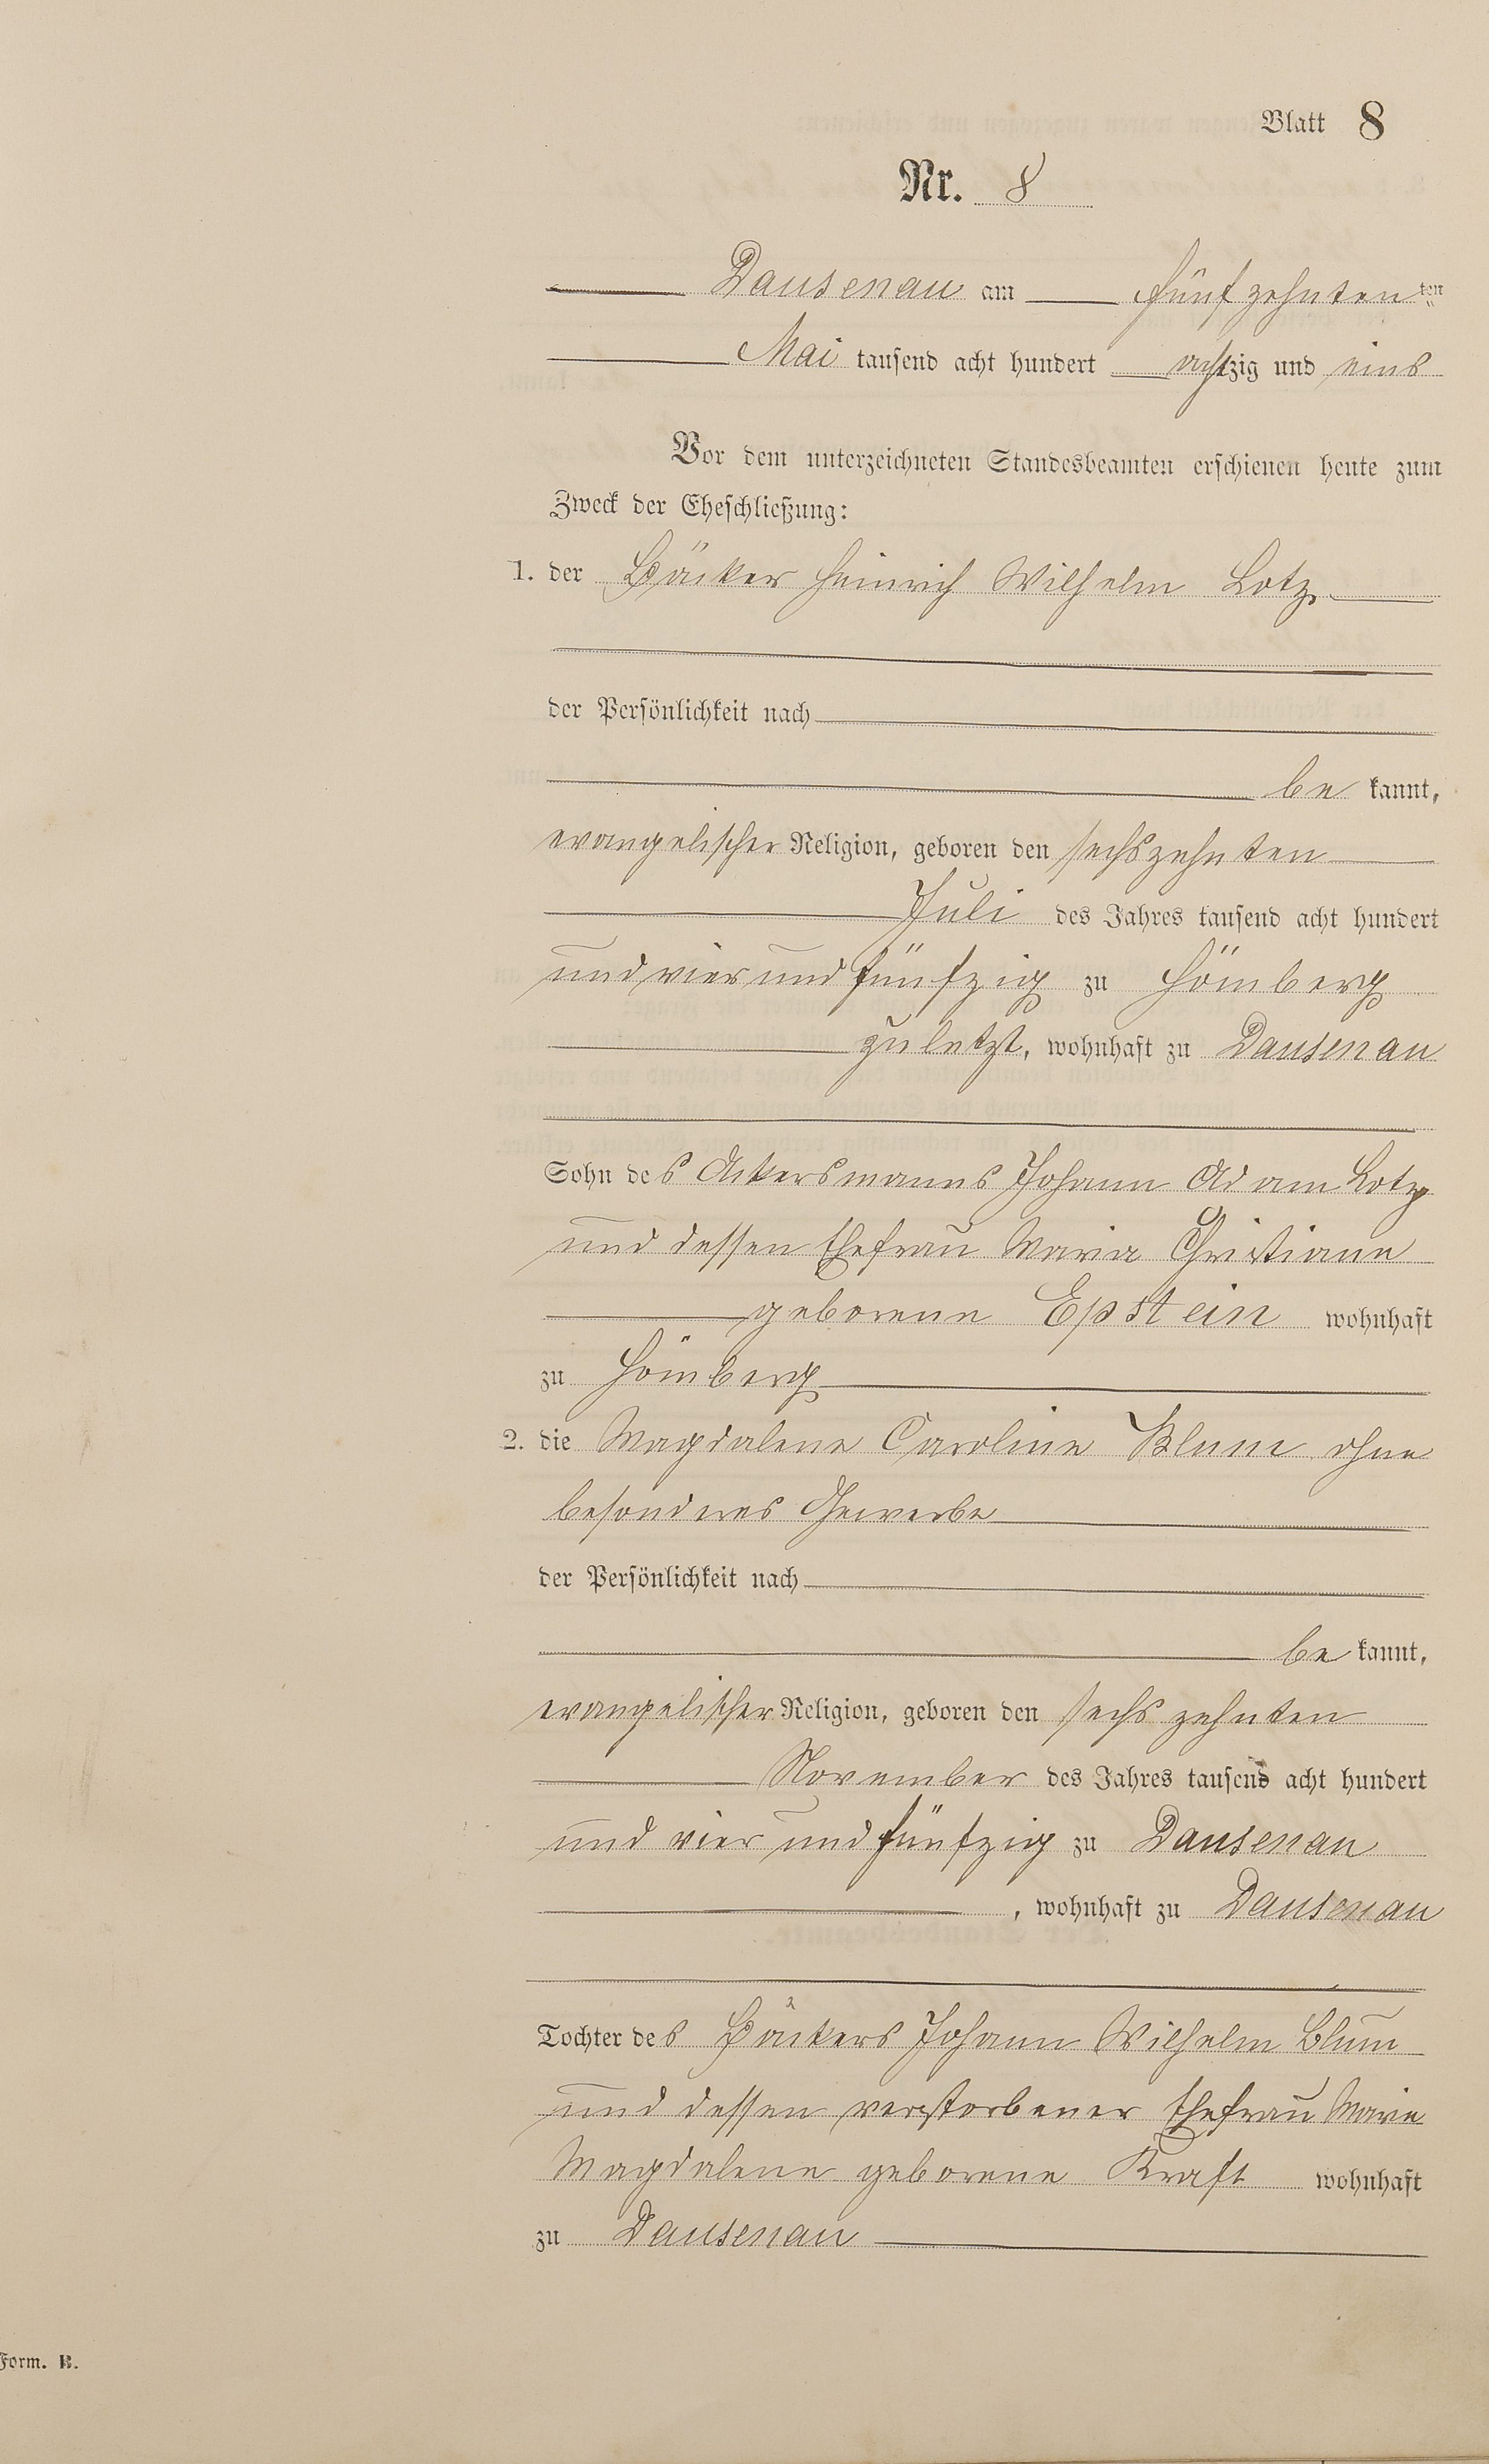 Blatt 8
Nr. 8
Dausenau am fünfzehnten ten
Mai tausend acht hundert achtzig und eins
Vor dem unterzeichneten Standesbeamten erschienen heute zum
Zweck der Eheschließung:
1. der Bäcker Heinrich Wilhelm Lotz
der Persönlichkeit nach
be kannt,
evangelischer Religion, geboren den sechszehnten
Juli des Jahres tausend acht hundert
und vier und fünfzig zu Hömberg
zuletzt, wohnhaft zu Dausenau
Sohn des Ackersmanns Johann Adam Lotz
und dessen Ehefrau Maria Christiane
geborene Epstein wohnhaft
zu Hömberg
2. die Magdalene Caroline Blum ohne
besonderes Gewerbe
der Persönlichkeit nach
be kannt,
evangelischer Religion, geboren den sechszehnten
November des Jahres tausend acht hundert
und vier und fünfzig zu Dausenau
, wohnhaft zu Dausenau
Tochter des Bäckers Johann Wilhelm Blum
und dessen verstorbener Ehefrau Marie
Magdalene geborene Kraft wohnhaft
zu Dausenau
Form. B.